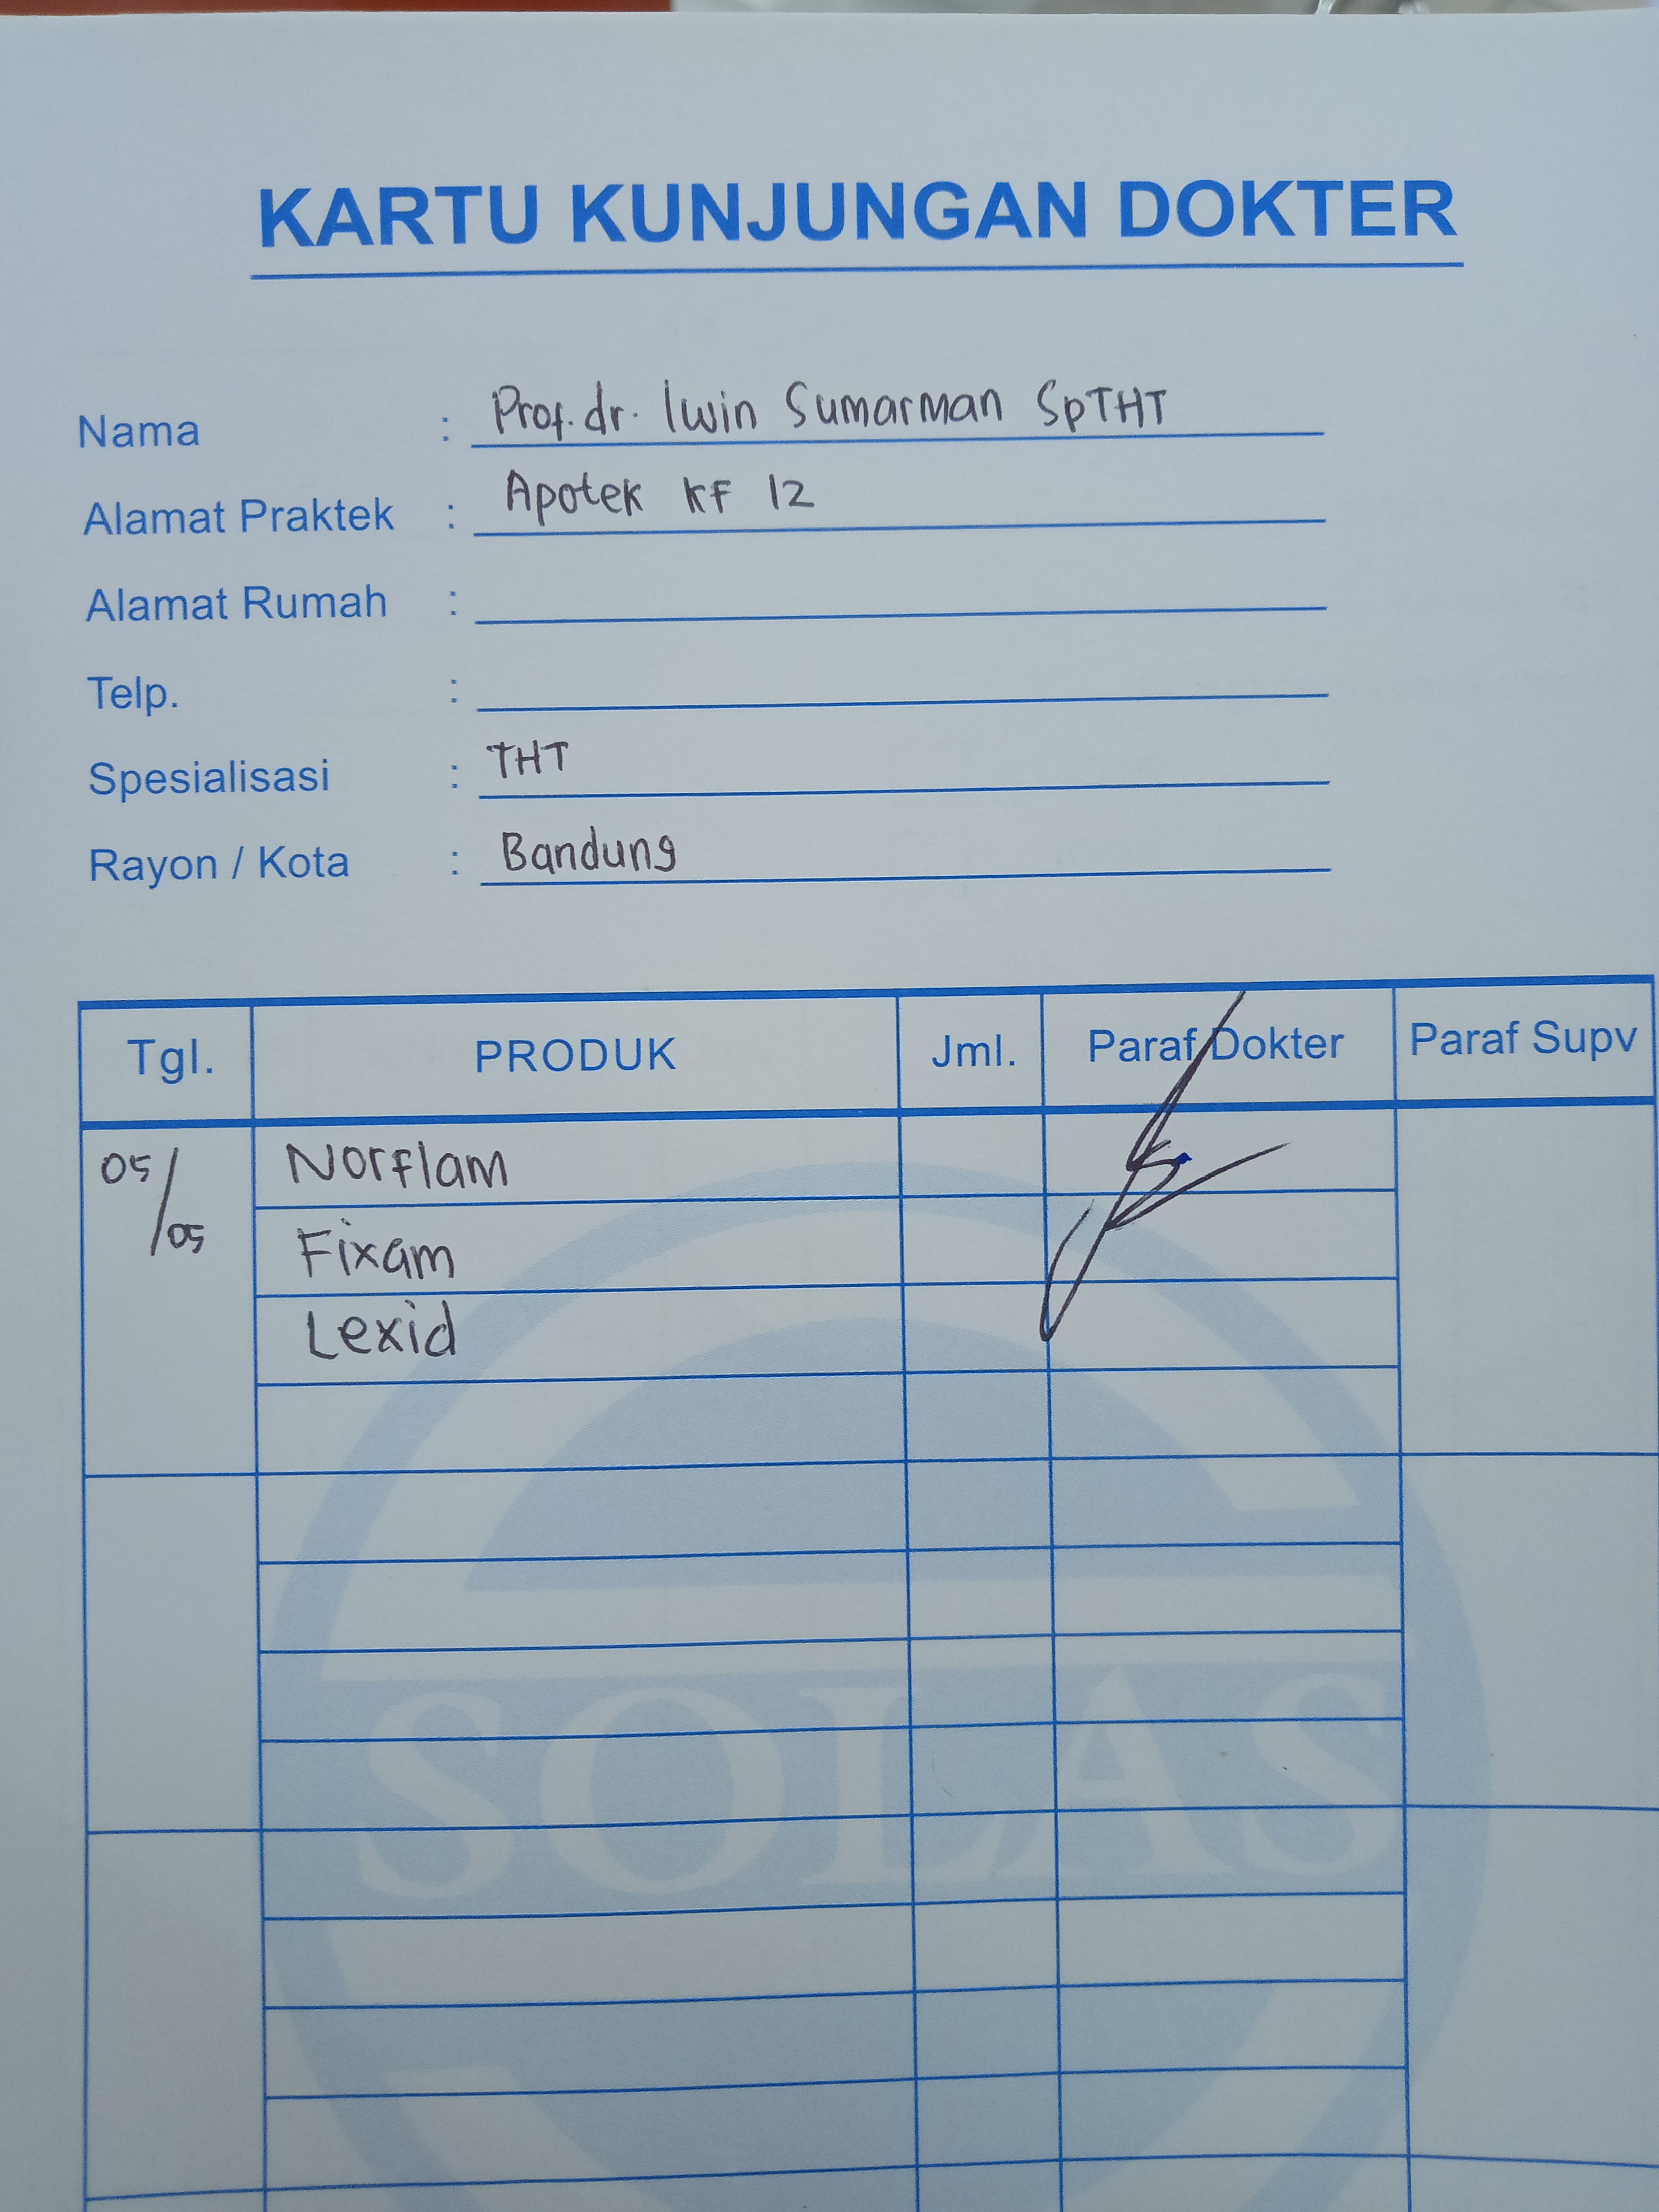 KARTU KUNJUNGAN DOKTER
Nama : Prof. dr. Iwin Sumarman SpTHT
Alamat Praktek : Apotek KF 12
Alamat Rumah :
Telp. :
Spesialisasi : THT
Rayon / Kota : Bandung
Tgl. PRODUK Jml. Paraf Dokter Paraf Supv
05/05 Norflam
Fixam
Lexid
SOLAS